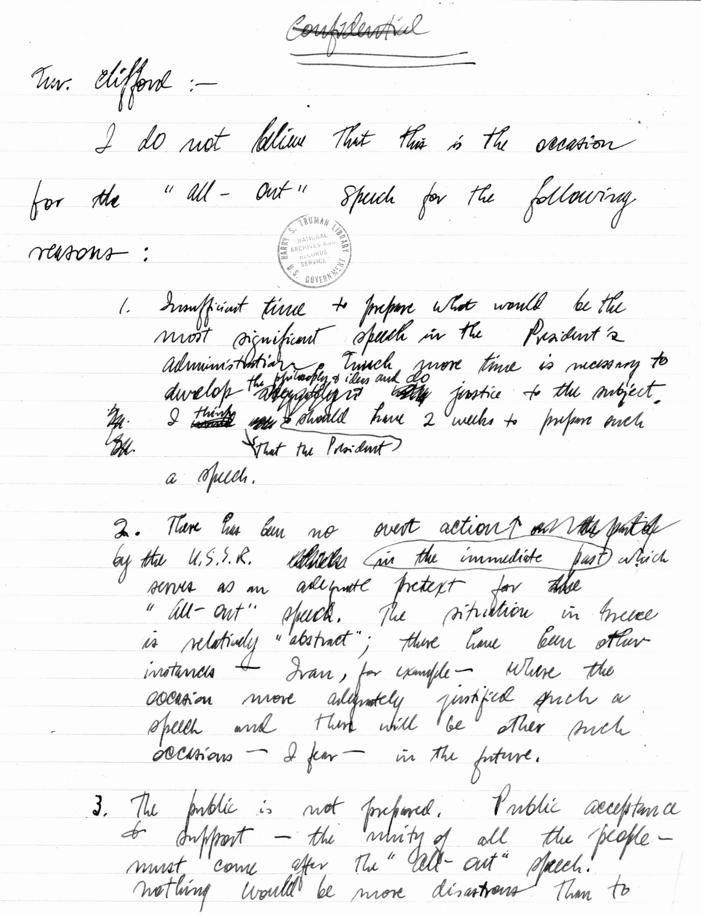 Confidential
Mr. Clifford :—
I do not believe that this is the occasion
for the "all-out" speech for the following
reasons :
HARRY S. TRUMAN LIBRARY
NATIONAL
ARCHIVES AND
RECORDS
SERVICE
U.S. GOVERNMENT
1. Insufficient time to prepare what would be the
most significant speech in the President's
administration. Much more time is necessary to
the philosophy & ideas and do
develop justice to the subject.
I think should have 2 weeks to prepare such
that the President
a speech.
2. There has been no overt action
by the U.S.S.R. in the immediate past which
serves as an adequate pretext for the
"all-out" speech. The situation in Greece
is relatively "abstract"; there have been other
instances — Iran, for example — where the
occasion more adequately justified such a
speech and there will be other such
occasions — I fear — in the future.
3. The public is not prepared. Public acceptance
& support — the unity of all the people —
must come after the "all-out" speech.
Nothing would be more disastrous than to